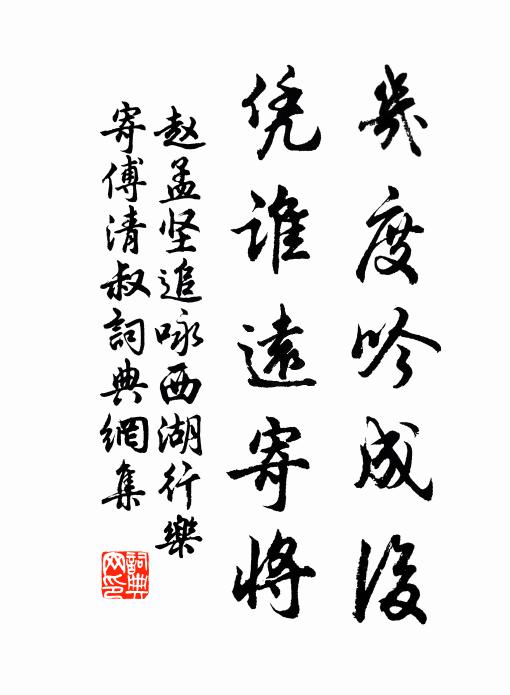 几度吟成后
凭谁远寄将
赵孟坚追咏西湖行樂
寄傅清叔詞典網集
詞典網印